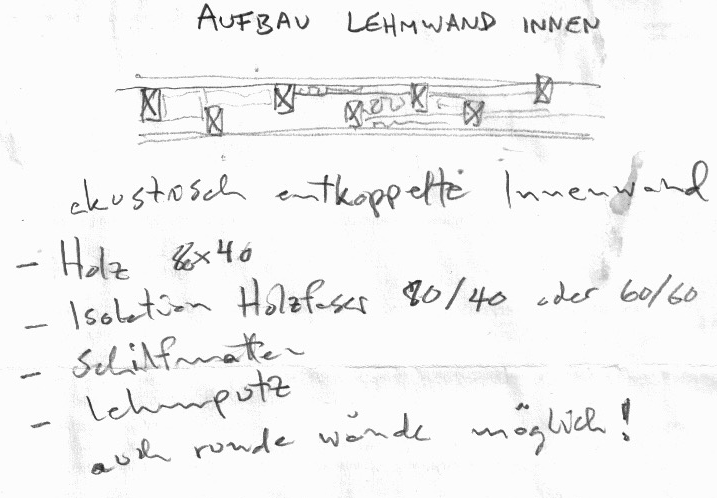 AUFBAU LEHMWAND INNEN
akustisch entkoppelte Innenwand
- Holz 80x40
- Isolation Holzfaser 80/40 oder 60/60
- Schilfmatten
- Lehmputz
auch runde wände möglich!